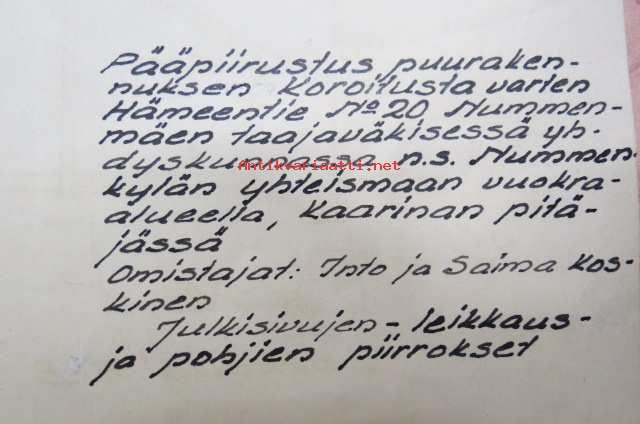 Pääpiirustus puuraken-
nuksen koroitusta varten
Hämeentie No 20 Nummen-
mäen taajaväkisessä yh-
dyskunnassa n.s. Nummen-
kylän yhteismaan vuokra-
alueella, Kaarinan pitä-
jässä
Omistajat: Into ja Saima Kos-
kinen
Julkisivujen - leikkaus-
ja pohjien piirrokset
Antikvariaatti.net